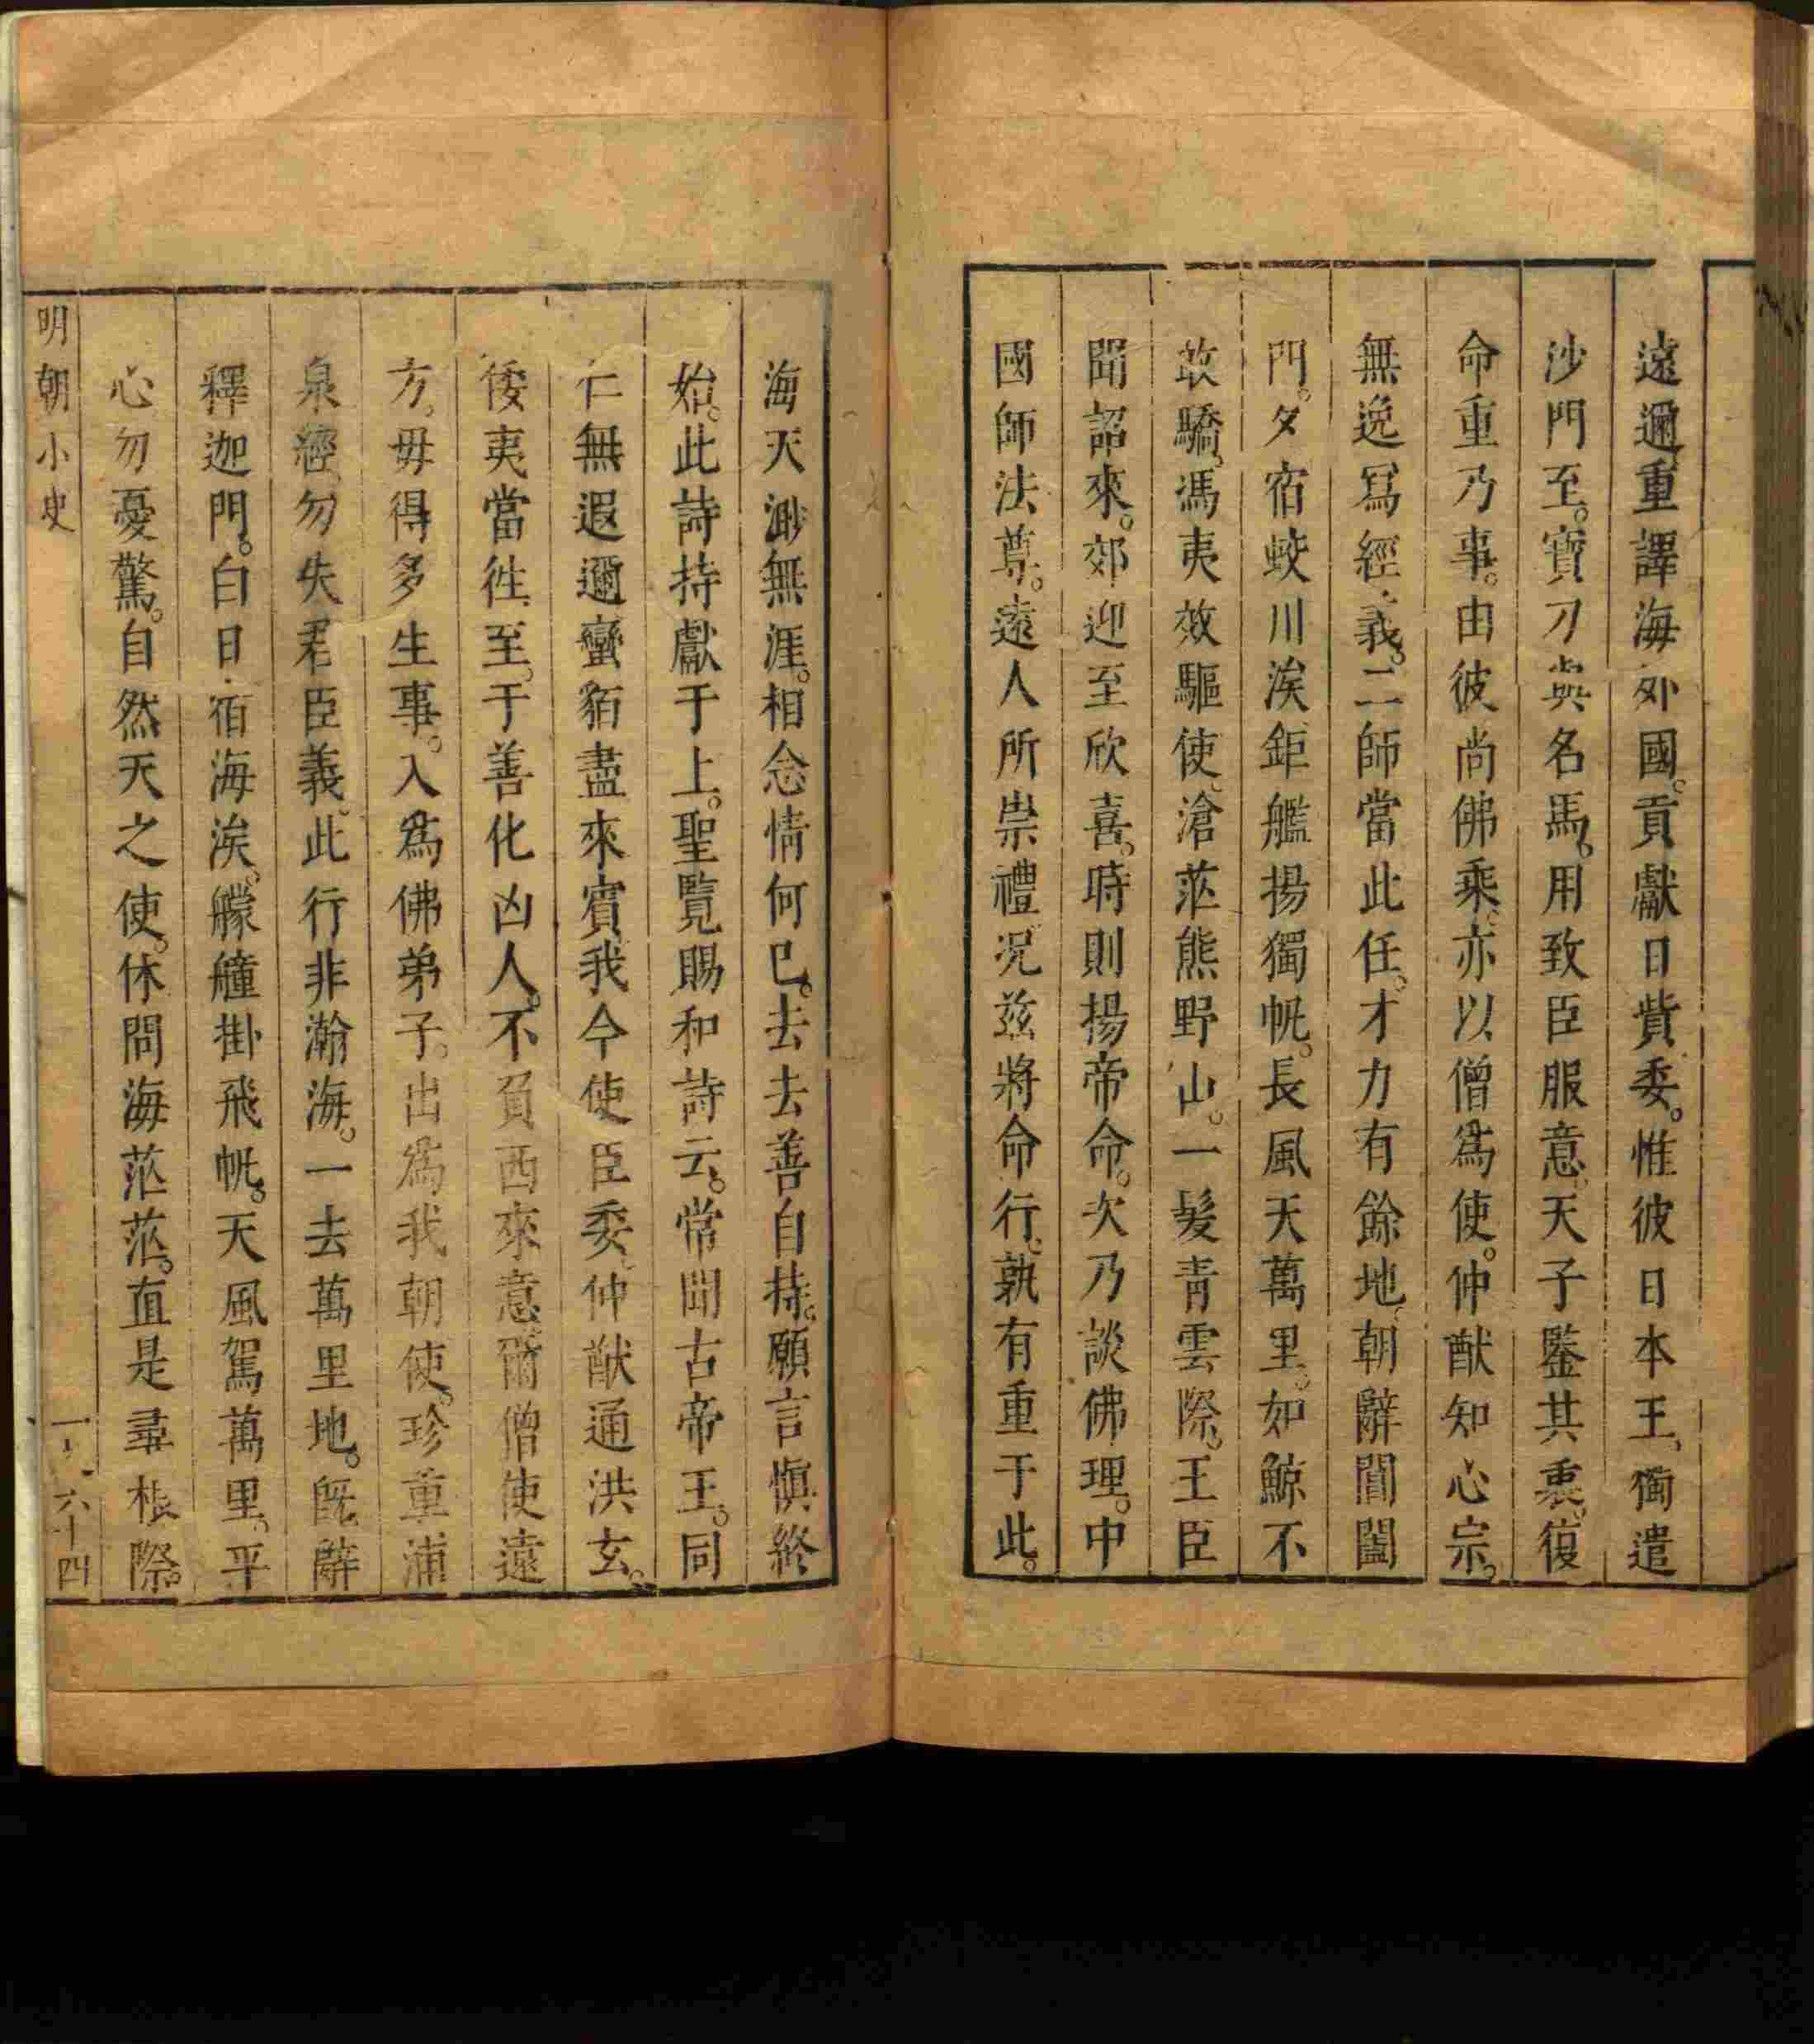 遠邇重譯海外國。貢獻日貲委。惟彼日本王、獨遣
沙門至。寶刀與名馬。用致臣服意。天子鑒其衷。復
命重乃事。由彼尚佛乘。亦以僧爲使。仲猷知心宗。
無逸寫經義。二師當此任。才力有餘地、朝辭閶闔
門。夕宿蛟川涘鉅艦揚獨帆。長風天萬里。如鯨不
敢驕。馮夷效驅使。滄茫熊野山。一髮靑雲際。王臣
聞詔來。郊迎至欣喜。時則揚帝命。次乃談佛理。中
國師法尊。遠人所崇禮况茲將命行、孰有重于此。
海天渺無涯。相念情何巳。去去善自持。願言愼終
始。此詩持獻于上。聖覽賜和詩云。常聞古帝王。同
仁無遐邇蠻貊盡來賓我今使臣委、仲猷通洪玄。
倭夷當徃至。于善化凶人。不負西來意爾僧使遠
方。毋得多生事。入爲佛弟子。出爲我朝使。珍重浦
泉經、勿失君臣義。此行非瀚海。一去萬里地。旣辭
釋迦門。白日宿海涘。艨艟掛飛帆。天風駕萬里。平
心勿憂驚。自然天之使。休問海茫茫。直是尋根際。
明朝小史
六十四